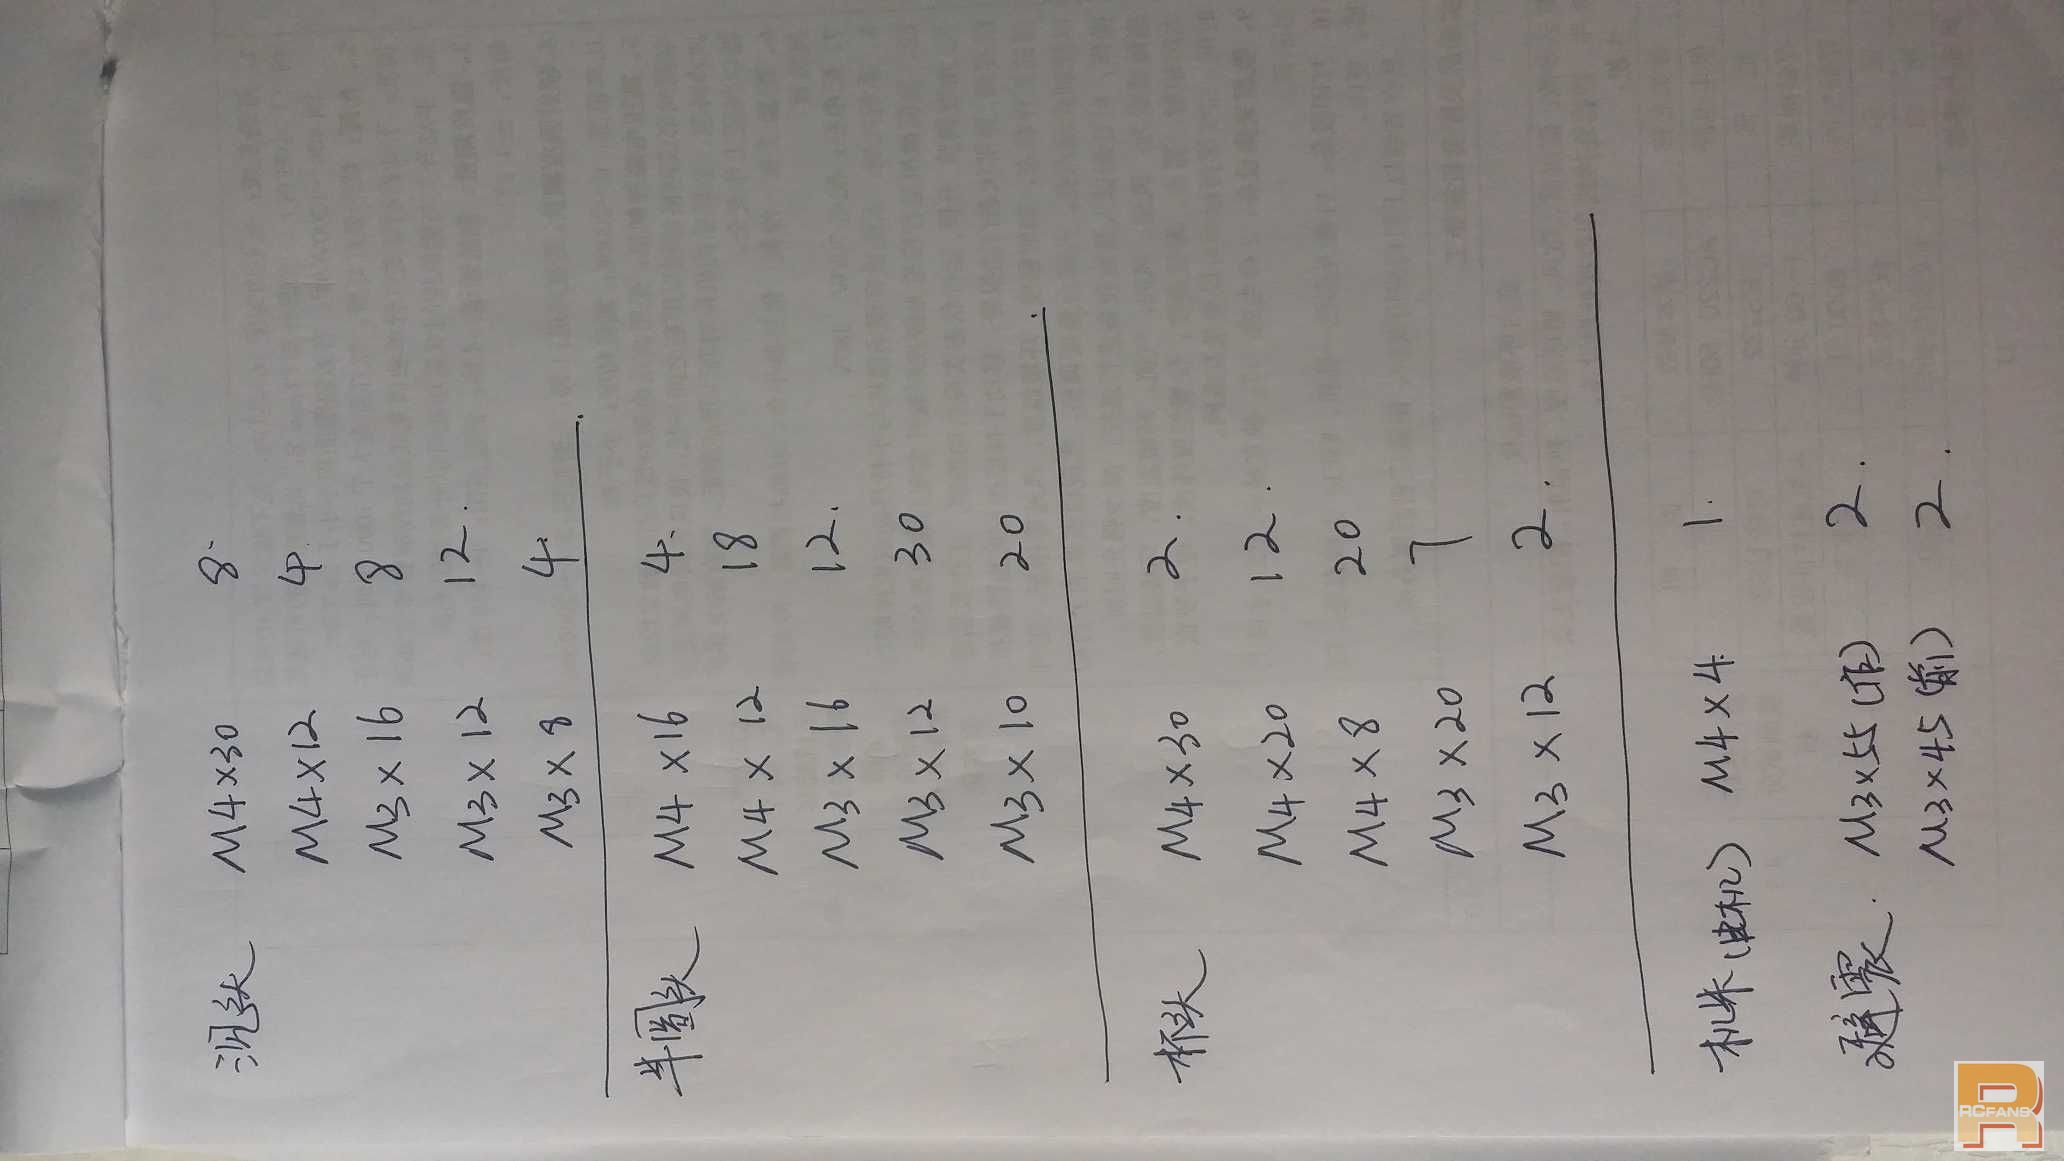 沉头 M4×30 8.
M4×12 4.
M3×16 8
M3×12 12.
M3×8 4.
半圆头 M4×16 4.
M4×12 18
M3×16 12.
M3×12 30
M3×10 20
杯头 M4×30 2.
M4×20 12.
M4×8 20
M3×20 7
M3×12 2.
机米(电机) M4×4. 1.
避震. M3×55(后) 2.
M3×45(前) 2.
RCFANS